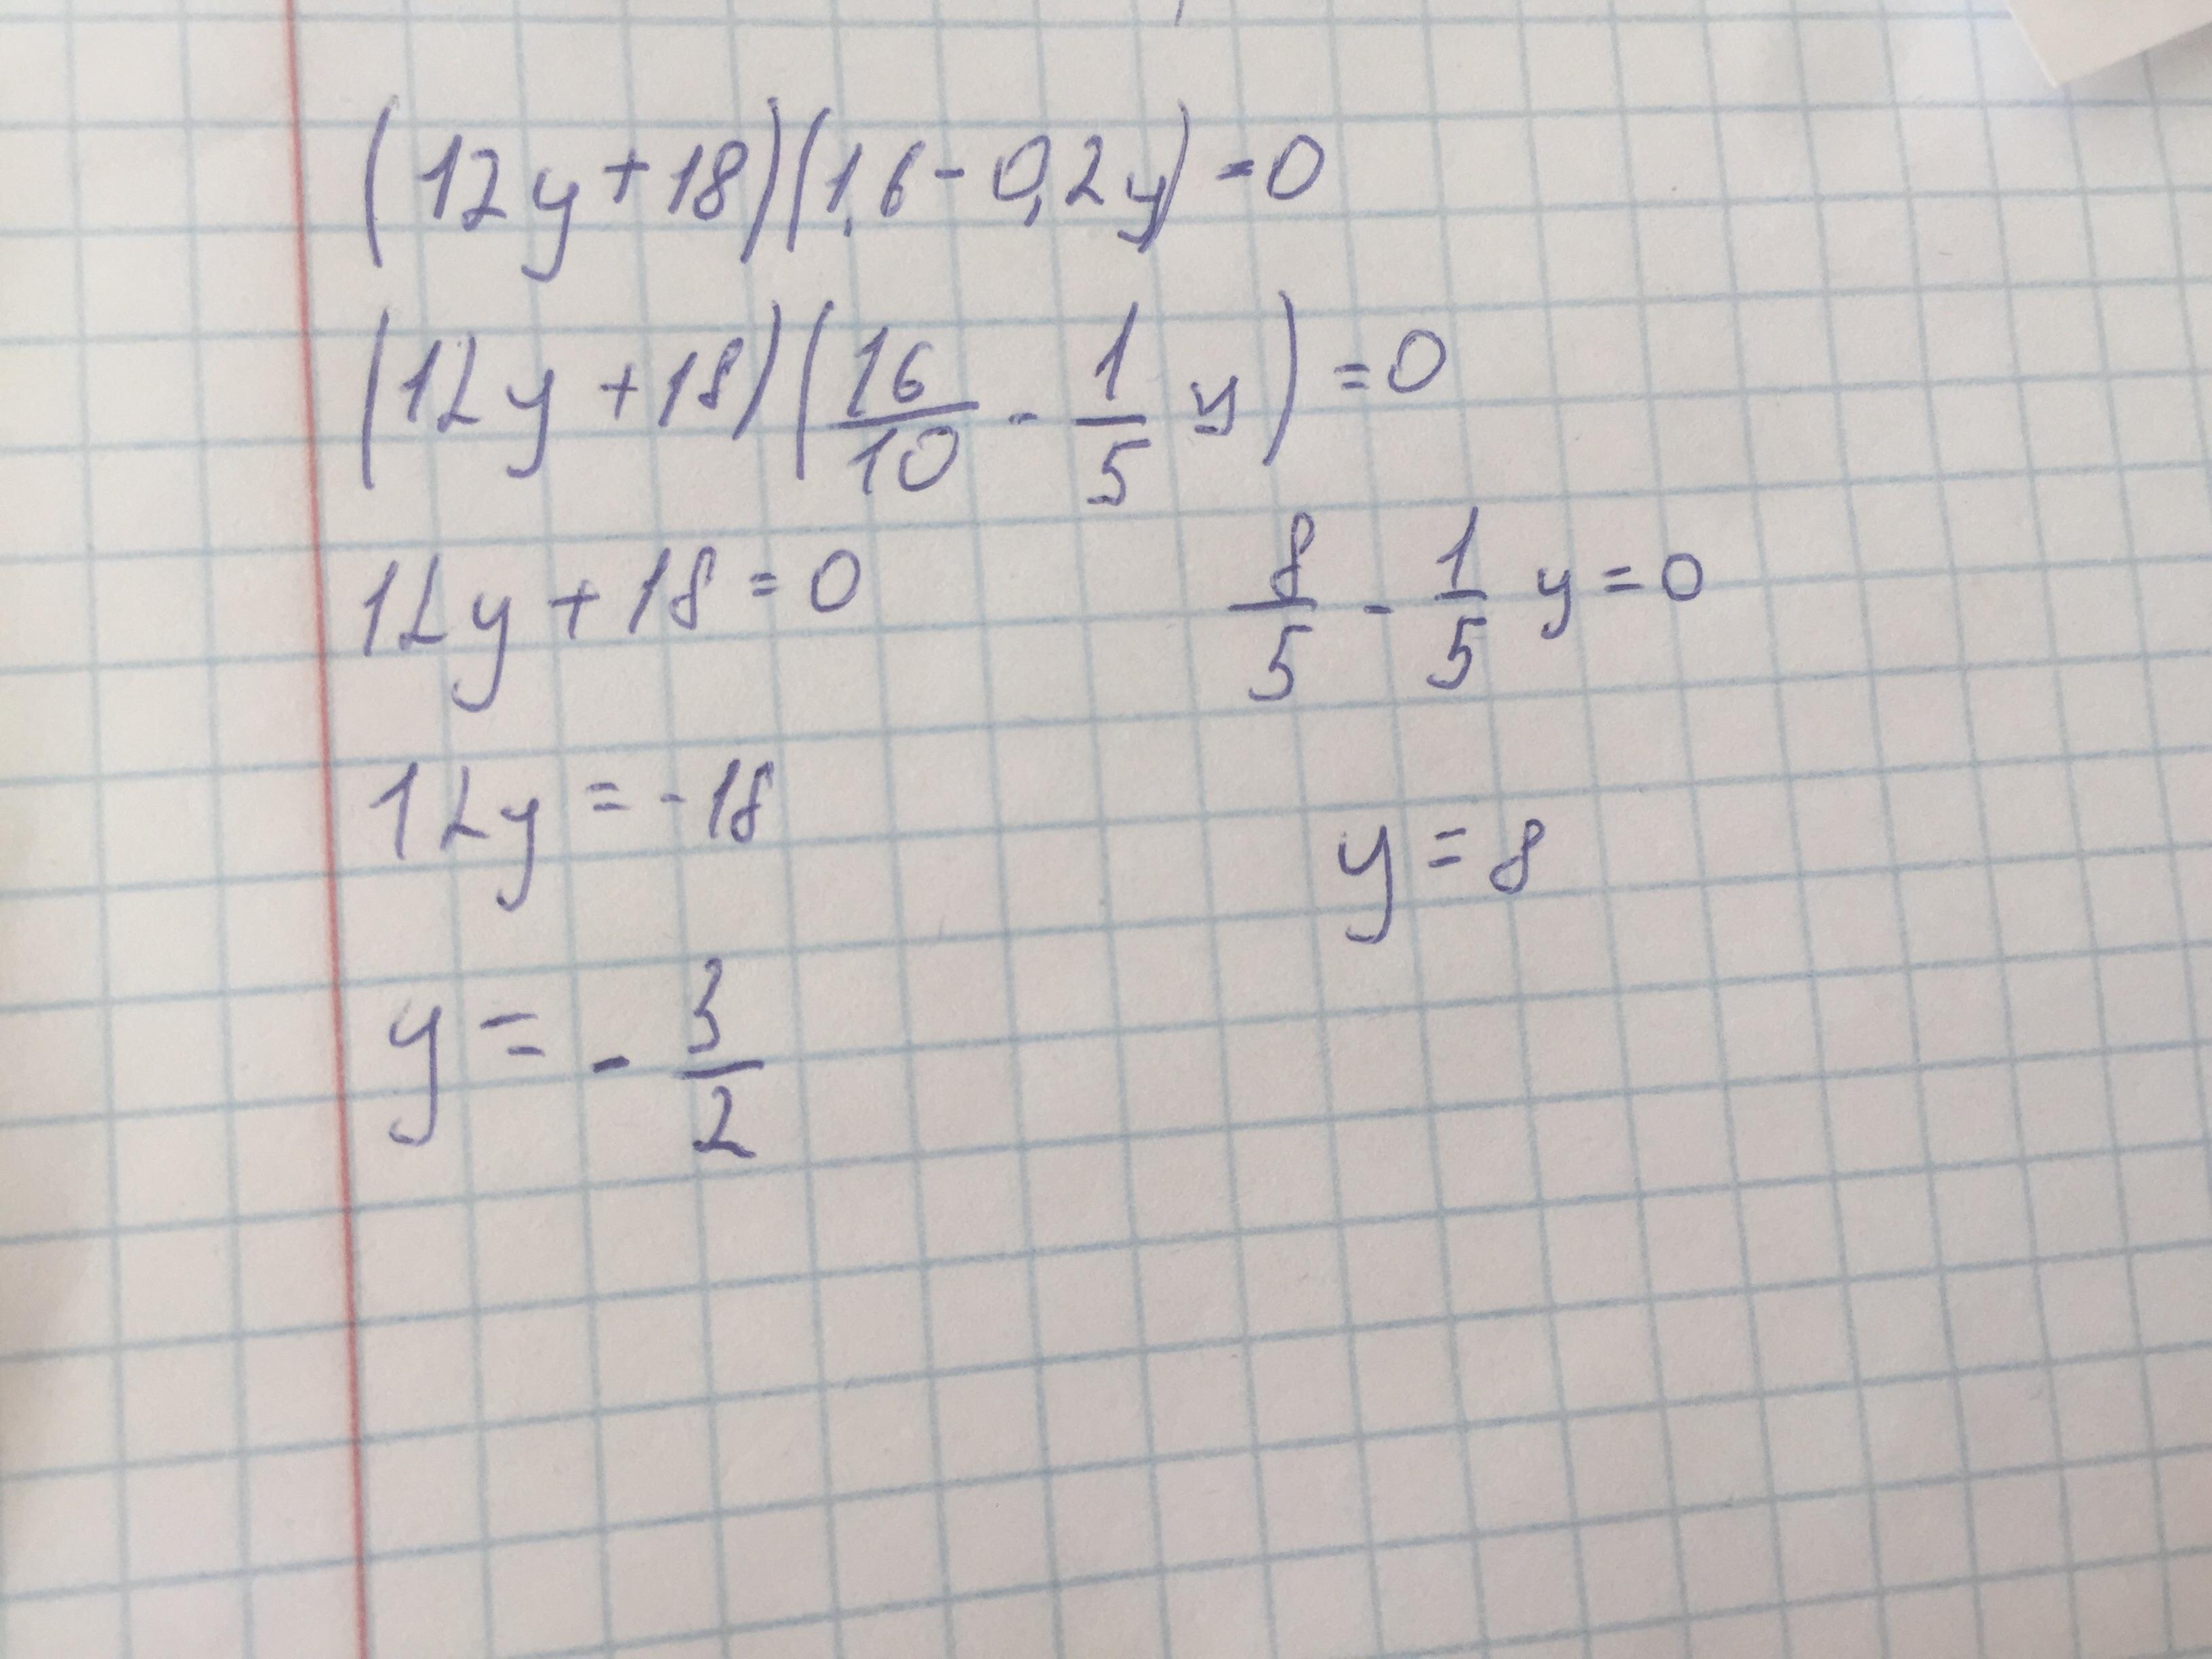 (12y+18)(1,6-0,2y)=0
(12y+18)(16/10 - 1/5 y)=0
12y+18=0 8/5 - 1/5 y=0
12y=-18 y=8
y=-3/2